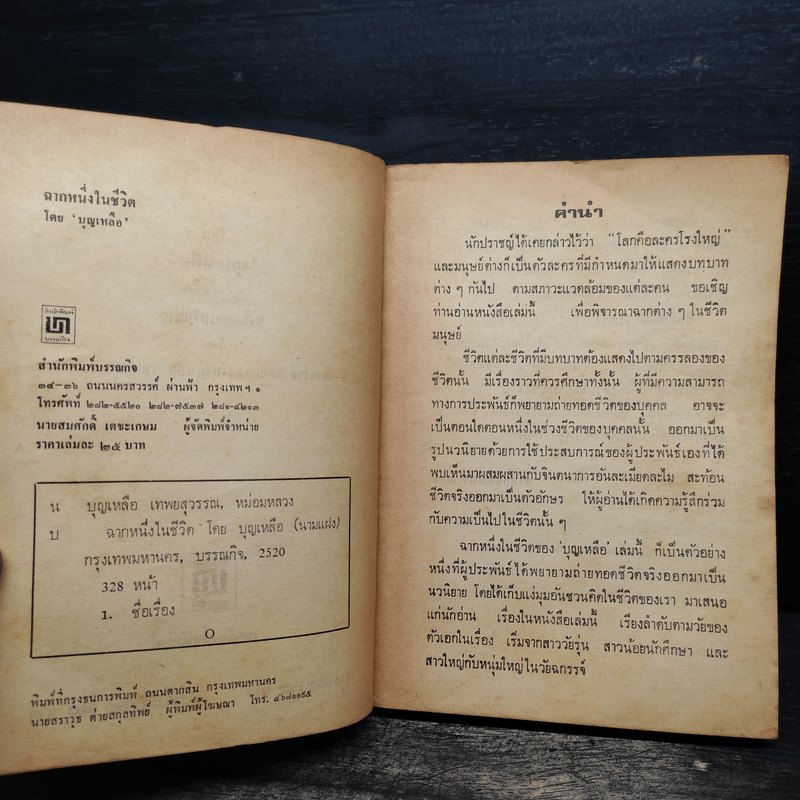 ฉากหนึ่งในชีวิต
โดย 'บุญเหลือ'
สำนักพิมพ์
บรรณกิจ
สำนักพิมพ์บรรณกิจ
๓๔-๓๖ ถนนนครสวรรค์ ผ่านฟ้า กรุงเทพฯ ๑
โทรศัพท์ ๒๘๒-๕๕๒๐ ๒๘๒-๗๕๓๗ ๒๘๑-๔๒๑๓
นายสมศักดิ์ เตชะเกษม ผู้จัดพิมพ์จำหน่าย
ราคาเล่มละ ๒๕ บาท
น บุญเหลือ เทพยสุวรรณ, หม่อมหลวง
บ ฉากหนึ่งในชีวิต โดย บุญเหลือ (นามแฝง)
กรุงเทพมหานคร, บรรณกิจ, 2520
328 หน้า
1. ชื่อเรื่อง
พิมพ์ที่กรุงธนการพิมพ์ ถนนตากสิน กรุงเทพมหานคร
นายสราวุธ ต่ายสกุลทิพย์ ผู้พิมพ์ผู้โฆษณา โทร. ๔๖๘๑๑๙๕
คำนำ
นักปราชญ์ได้เคยกล่าวไว้ว่า "โลกคือละครโรงใหญ่"
และมนุษย์ต่างก็เป็นตัวละครที่มีกำหนดมาให้แสดงบทบาท
ต่าง ๆ กันไป ตามสภาวะแวดล้อมของแต่ละคน ขอเชิญ
ท่านอ่านหนังสือเล่มนี้ เพื่อพิจารณาฉากต่าง ๆ ในชีวิต
มนุษย์
ชีวิตแต่ละชีวิตที่มีบทบาทต้องแสดงไปตามครรลองของ
ชีวิตนั้น มีเรื่องราวที่ควรศึกษาทั้งนั้น ผู้ที่มีความสามารถ
ทางการประพันธ์ก็พยายามถ่ายทอดชีวิตของบุคคล อาจจะ
เป็นตอนใดตอนหนึ่งในช่วงชีวิตของบุคคลนั้น ออกมาเป็น
รูปนวนิยายด้วยการใช้ประสบการณ์ของผู้ประพันธ์เองที่ได้
พบเห็นมาผสมผสานกับจินตนาการอันละเมียดละไม สะท้อน
ชีวิตจริงออกมาเป็นตัวอักษร ให้ผู้อ่านได้เกิดความรู้สึกร่วม
กับความเป็นไปในชีวิตนั้น ๆ
ฉากหนึ่งในชีวิตของ 'บุญเหลือ' เล่มนี้ ก็เป็นตัวอย่าง
หนึ่งที่ผู้ประพันธ์ได้พยายามถ่ายทอดชีวิตจริงออกมาเป็น
นวนิยาย โดยได้เก็บแง่มุมอันชวนคิดในชีวิตของเรา มาเสนอ
แก่นักอ่าน เรื่องในหนังสือเล่มนี้ เรียงลำดับตามวัยของ
ตัวเอกในเรื่อง เริ่มจากสาววัยรุ่น สาวน้อยนักศึกษา และ
สาวใหญ่กับหนุ่มใหญ่ในวัยฉกรรจ์